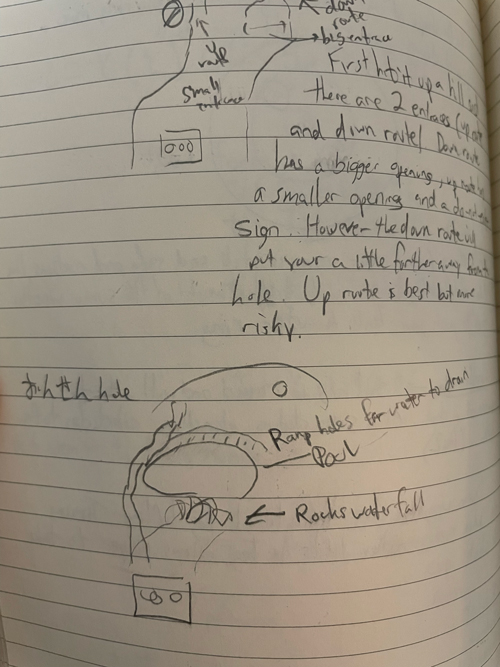 down
route
up
route
→ big entrace
small
entrace
First hit it up a hill and
there are 2 entraces (up route
and down route) Down route
has a bigger opening, up route has
a smaller opening and a
sign. However the down route will
put your a little farther away from
hole. Up route is best but more
risky.
おんせん hole
Ramp holes for water to drain
Pool
← Rocks waterfall